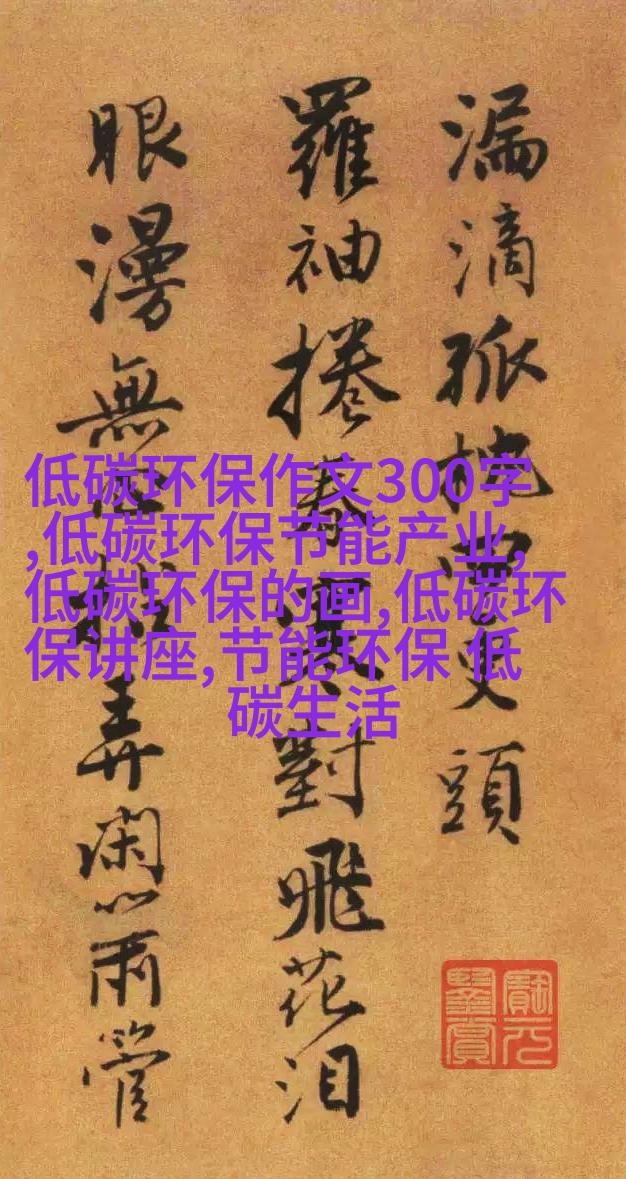 漏滴孤更頭
羅袖捲寒對飛花泪
眼漫無弄閑管
低碳环保作文300字
,低碳环保节能产业,
低碳环保的画,低碳环
保讲座,节能环保 低
碳生活